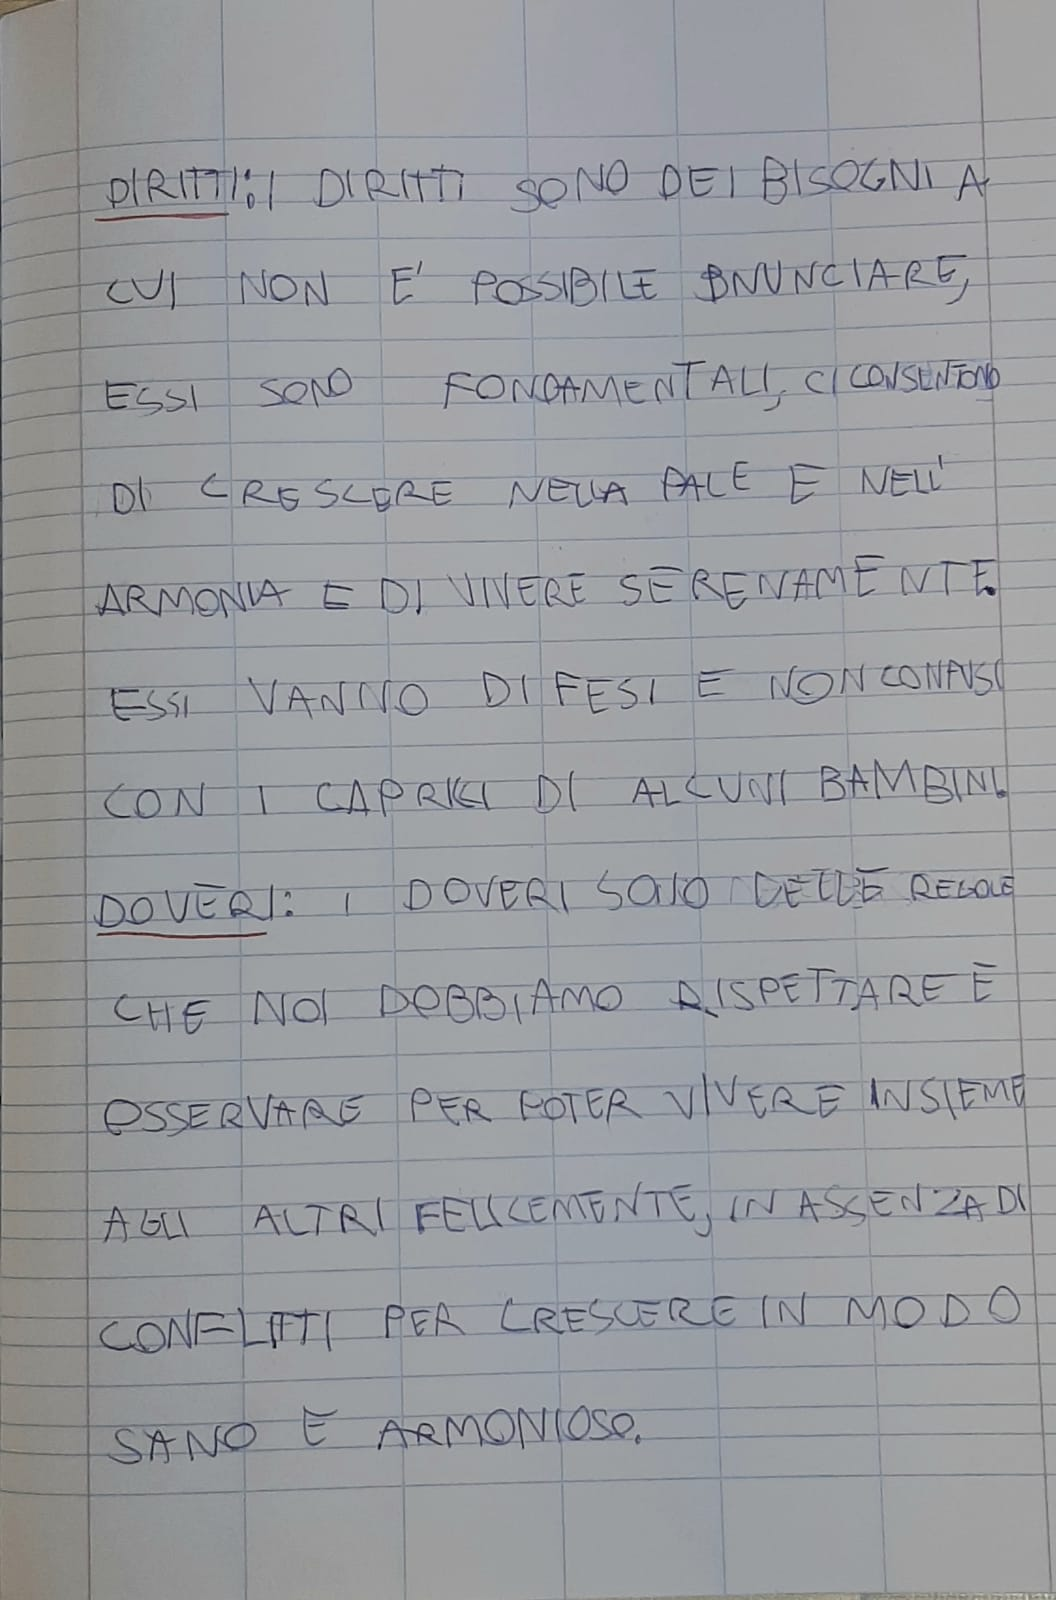 DIRITTI: I DIRITTI SONO DEI BISOGNI A
CUI NON E' POSSIBILE RNUNCIARE,
ESSI SONO FONDAMENTALI, CI CONSENTONO
DI CRESCERE NELLA PACE E NELL'
ARMONIA E DI VIVERE SERENAMENTE.
ESSI VANNO DIFESI E NON CONFUSI
CON I CAPRICCI DI ALCUNI BAMBINI.
DOVERI: I DOVERI SONO DELLE REGOLE
CHE NOI DOBBIAMO RISPETTARE E
OSSERVARE PER POTER VIVERE INSIEME
AGLI ALTRI FELICEMENTE, IN ASSENZA DI
CONFLITTI PER CRESCERE IN MODO
SANO E ARMONIOSO.